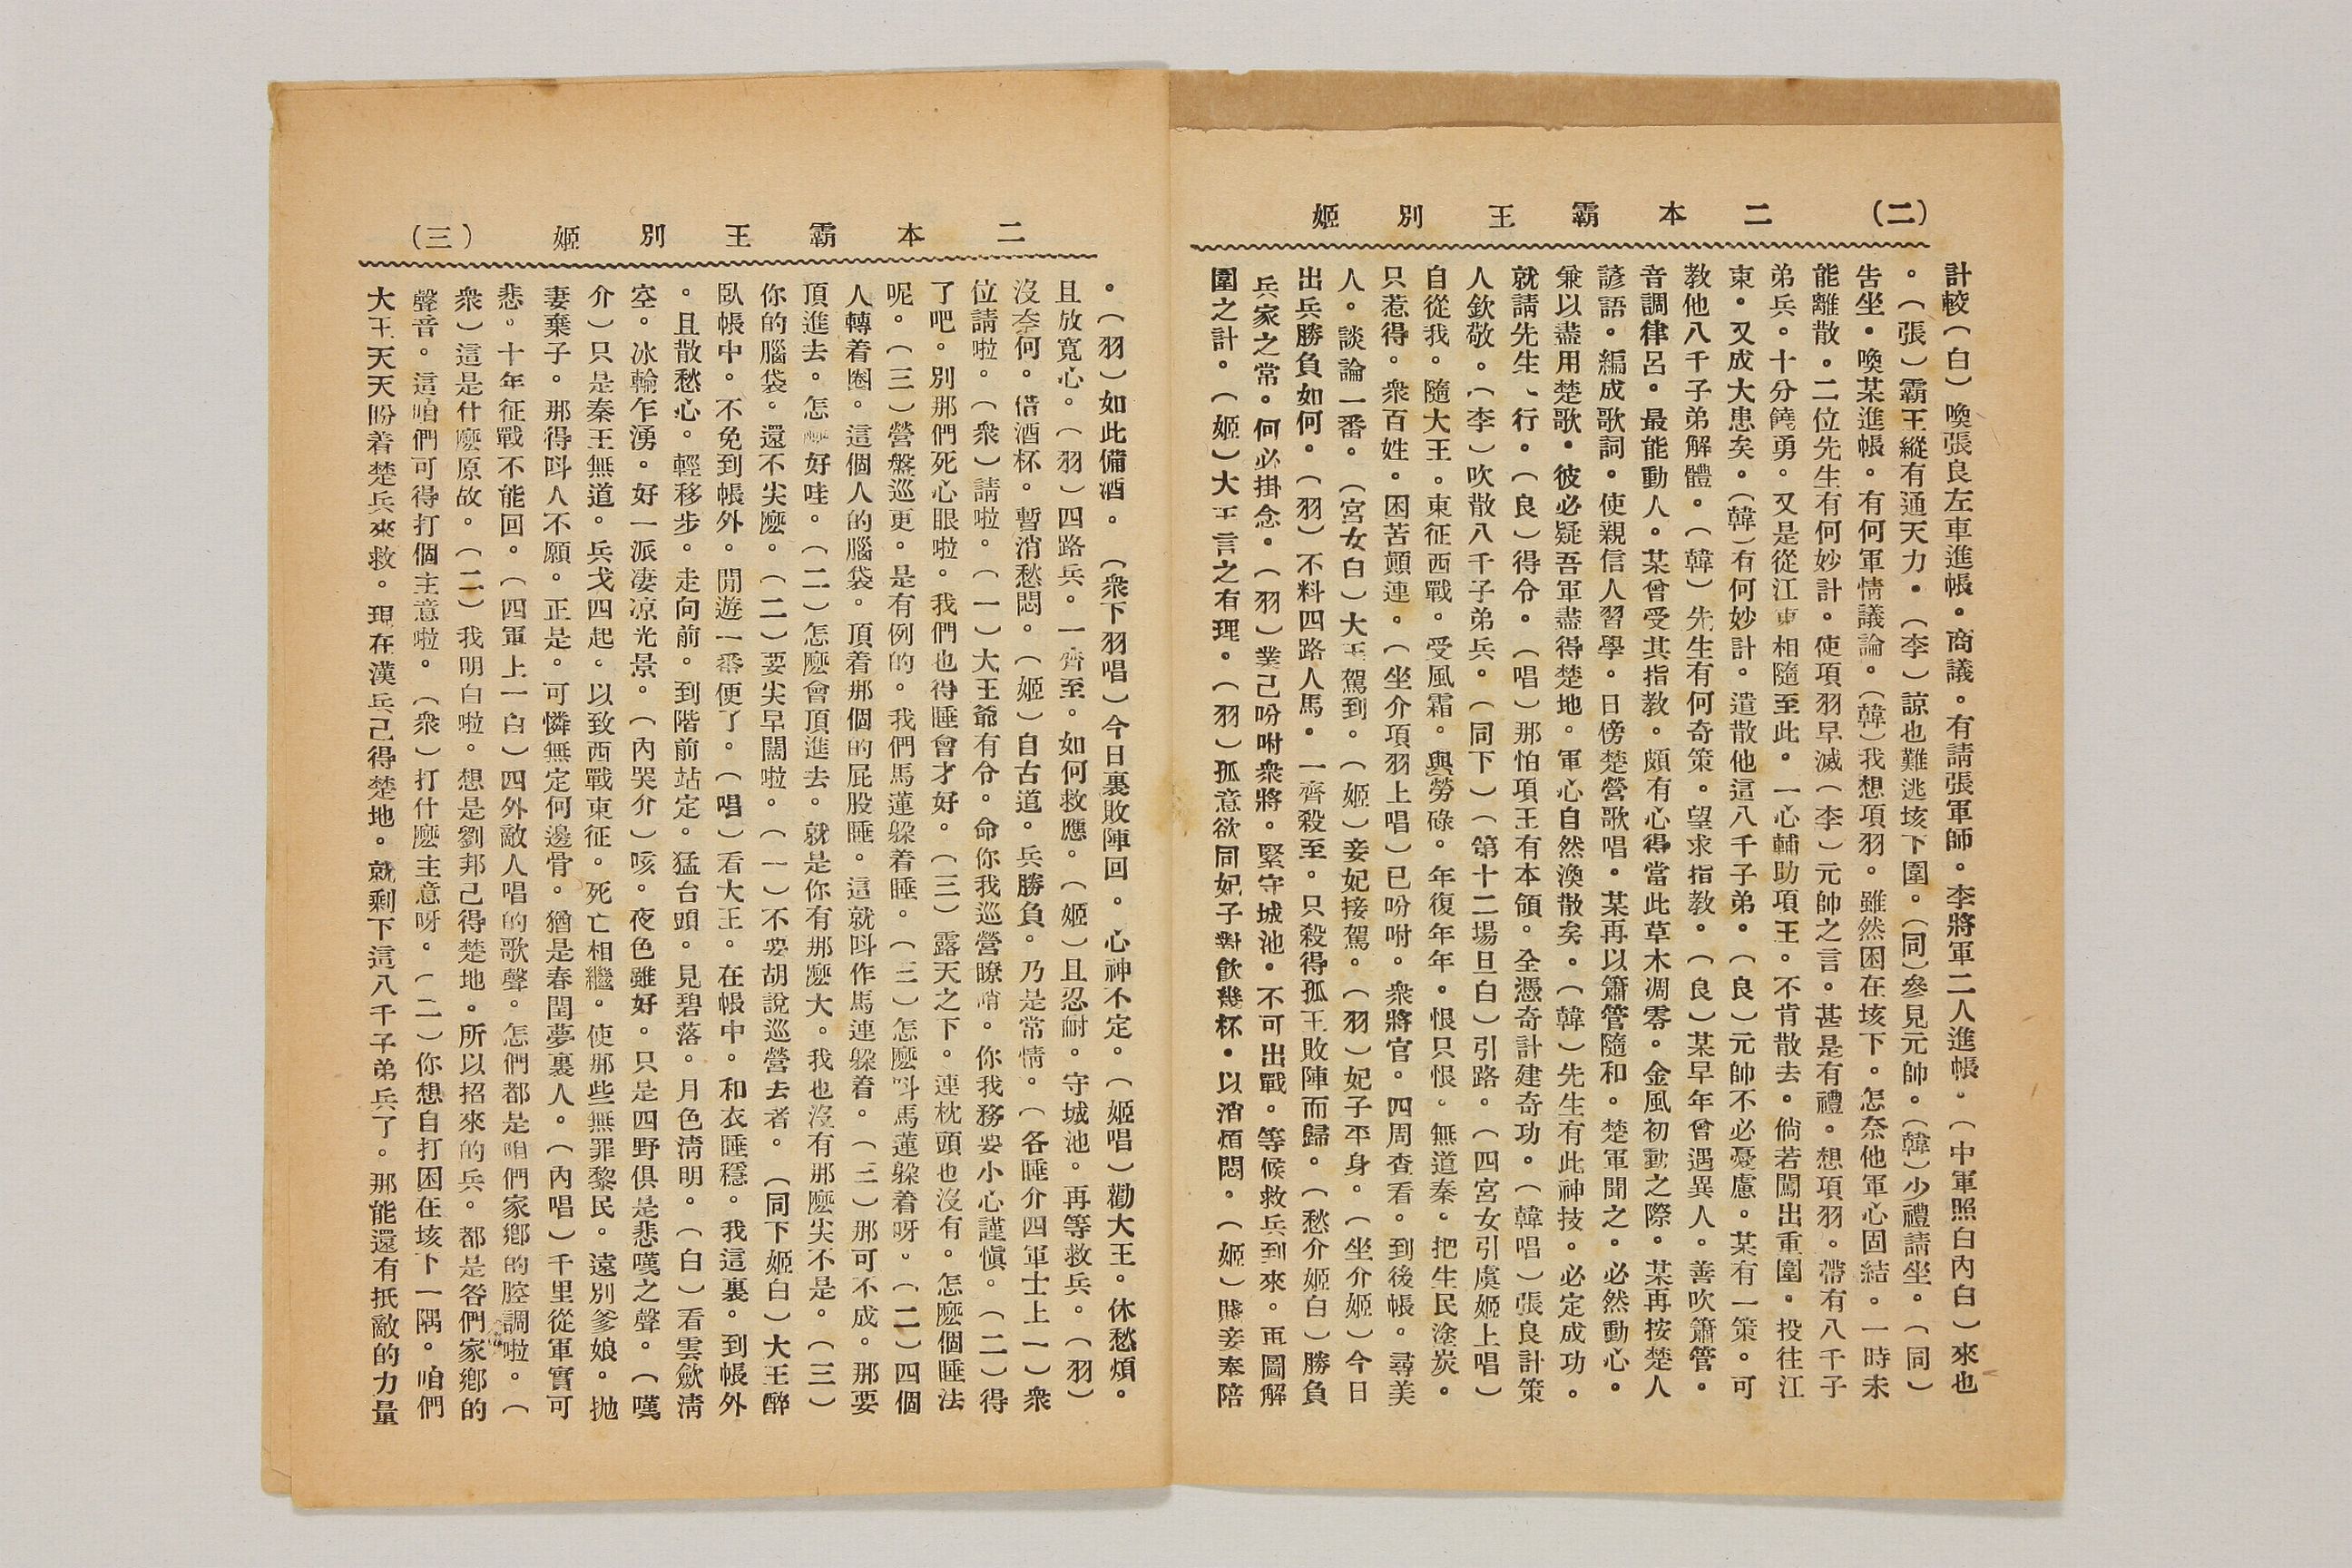 (二) 二本霸王別姬
計較(白)喚張良左車進帳。商議。有請張軍師。李將軍二人進帳。(中軍照白內白)來也
。(張)霸王縱有通天力。(李)諒也難逃垓下圍。(同)參見元帥。(韓)少禮請坐。(同)
吿坐。喚某進帳。有何軍情議論。(韓)我想項羽。雖然困在垓下。怎奈他軍心固結。一時未
能離散。二位先生有何妙計。使項羽早滅(李)元帥之言。甚是有禮。想項羽。帶有八千子
弟兵。十分饒勇。又是從江東相隨至此。一心輔助項王。不肯散去。倘若闖出重圍。投往江
東。又成大患矣。(韓)有何妙計。遣散他這八千子弟。(良)元帥不必憂慮。某有一策。可
教他八千子弟解體。(韓)先生有何奇策。望求指教。(良)某早年曾遇異人。善吹簫管。
音調律呂。最能動人。某曾受其指教。頗有心得當此草木凋零。金風初動之際。某再按楚人
諺語。編成歌詞。使親信人習學。日傍楚營歌唱。某再以簫管隨和。楚軍聞之。必然動心。
兼以盡用楚歌。彼必疑吾軍盡得楚地。軍心自然渙散矣。(韓)先生有此神技。必定成功。
就請先生、行。(良)得令。(唱)那怕項王有本領。全憑奇計建奇功。(韓唱)張良計策
人欽敬。(李)吹散八千子弟兵。(同下)(第十二場旦白)引路。(四宮女引虞姬上唱)
自從我。隨大王。東征西戰。受風霜。與勞碌。年復年年。恨只恨。無道秦。把生民塗炭。
只惹得。衆百姓。困苦顛連。(坐介項羽上唱)已吩咐。衆將官。四周查看。到後帳。尋美
人。談論一番。(宮女白)大王駕到。(姬)妾妃接駕。(羽)妃子平身。(坐介姬)今日
出兵勝負如何。(羽)不料四路人馬。一齊殺至。只殺得孤王敗陣而歸。(愁介姬白)勝負
兵家之常。何必掛念。(羽)業己吩咐衆將。緊守城池。不可出戰。等候救兵到來。再圖解
圍之計。(姬)大王言之有理。(羽)孤意欲同妃子對飲幾杯。以消煩悶。(姬)賤妾奉陪
二本霸王別姬 (三)
。(羽)如此備酒。(衆下羽唱)今日裏敗陣回。心神不定。(姬唱)勸大王。休愁煩。
且放寬心。(羽)四路兵。一齊至。如何救應。(姬)且忍耐。守城池。再等救兵。(羽)
沒奈何。借酒杯。暫消愁悶。(姬)自古道。兵勝負。乃是常情。(各睡介四軍士上一)衆
位請啦。(衆)請啦。(一)大王爺有令。命你我巡營瞭哨。你我務要小心謹愼。(二)得
了吧。別那們死心眼啦。我們也得睡會才好。(三)露天之下。連枕頭也沒有。怎麽個睡法
呢。(三)營盤巡更。是有例的。我們馬蓮躱着睡。(三)怎麽呌馬蓮躱着呀。(二)四個
人轉着圈。這個人的腦袋。頂着那個的屁股睡。這就呌作馬連躱着。(三)那可不成。那要
頂進去。怎 好哇。(二)怎麽會頂進去。就是你有那麽大。我也沒有那麽尖不是。(三)
你的腦袋。還不尖麽。(二)要尖早闊啦。(一)不要胡說巡營去者。(同下姬白)大王醉
臥帳中。不免到帳外。閒遊一番便了。(唱)看大王。在帳中。和衣睡穩。我這裏。到帳外
。且散愁心。輕移步。走向前。到階前站定。猛台頭。見碧落。月色淸明。(白)看雲歛淸
空。冰輪乍湧。好一派凄凉光景。(內哭介)咳。夜色雖好。只是四野俱是悲嘆之聲。(嘆
介)只是秦王無道。兵戈四起。以致西戰東征。死亡相繼。使那些無罪黎民。遠別爹娘。拋
妻棄子。那得呌人不願。正是。可憐無定何邊骨。猶是春閨夢裏人。(內唱)千里從軍實可
悲。十年征戰不能回。(四軍上一白)四外敵人唱的歌聲。怎們都是咱們家鄕的腔調啦。(
衆)這是什麽原故。(二)我明白啦。想是劉邦己得楚地。所以招來的兵。都是咎們家鄕的
聲音。這咱們可得打個主意啦。(衆)打什麽主意呀。(二)你想自打困在垓下一隅。咱們
大王天天盼着楚兵來救。現在漢兵己得楚地。就剩下這八千子弟兵了。那能還有抵敵的力量